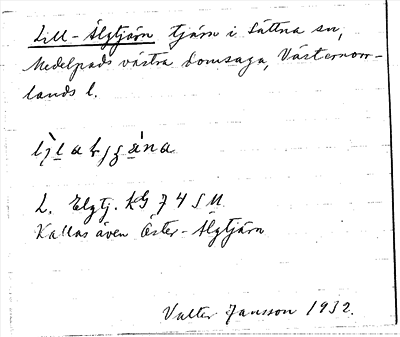 Lill-Älgtjärn tjärn i Sättna sn,
Medelpads västra domsaga, Västernorr-
lands l.
L. Elgtj. KG 74 S M
Kallas även Öster-Älgtjärn
Valter Jansson 1932.